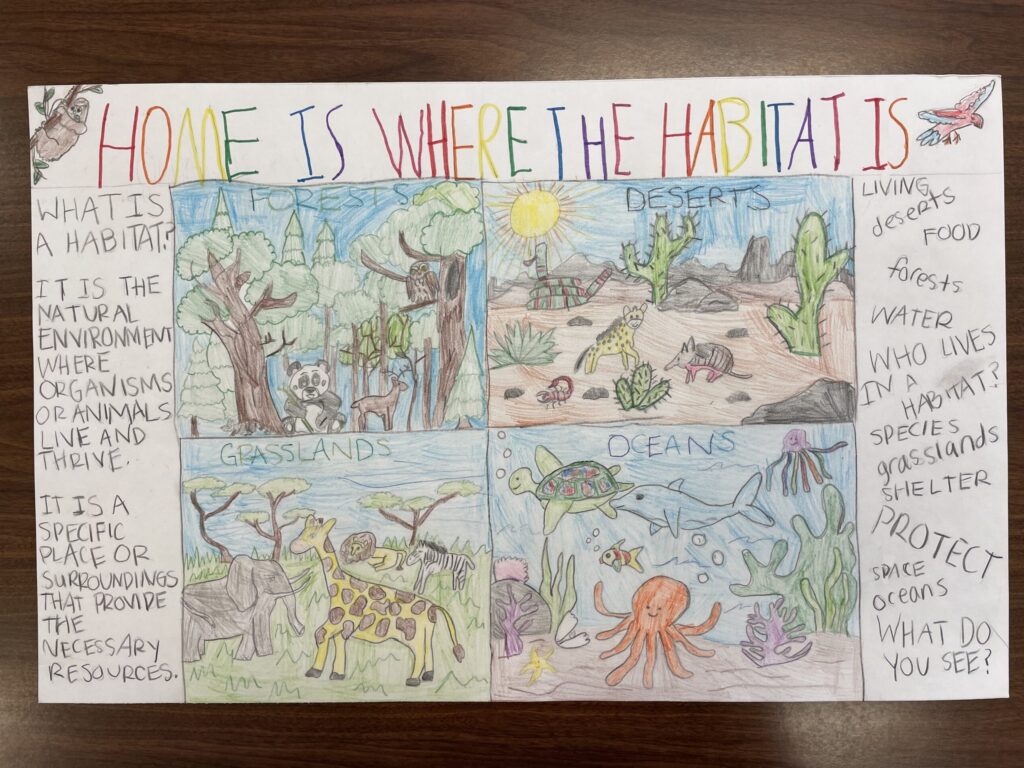 HOME IS WHERE THE HABITAT IS
WHAT IS
A HABITAT?
IT IS THE
NATURAL
ENVIRONMENT
WHERE
ORGANISMS
OR ANIMALS
LIVE AND
THRIVE.
IT IS A
SPECIFIC
PLACE OR
SURROUNDINGS
THAT PROVIDE
THE
NECESSARY
RESOURCES.
FORESTS
DESERTS
GRASSLANDS
OCEANS
LIVING
deserts
FOOD
forests
WATER
WHO LIVES
IN A
HABITAT?
SPECIES
grasslands
SHELTER
PROTECT
SPACE
oceans
WHAT DO
YOU SEE?